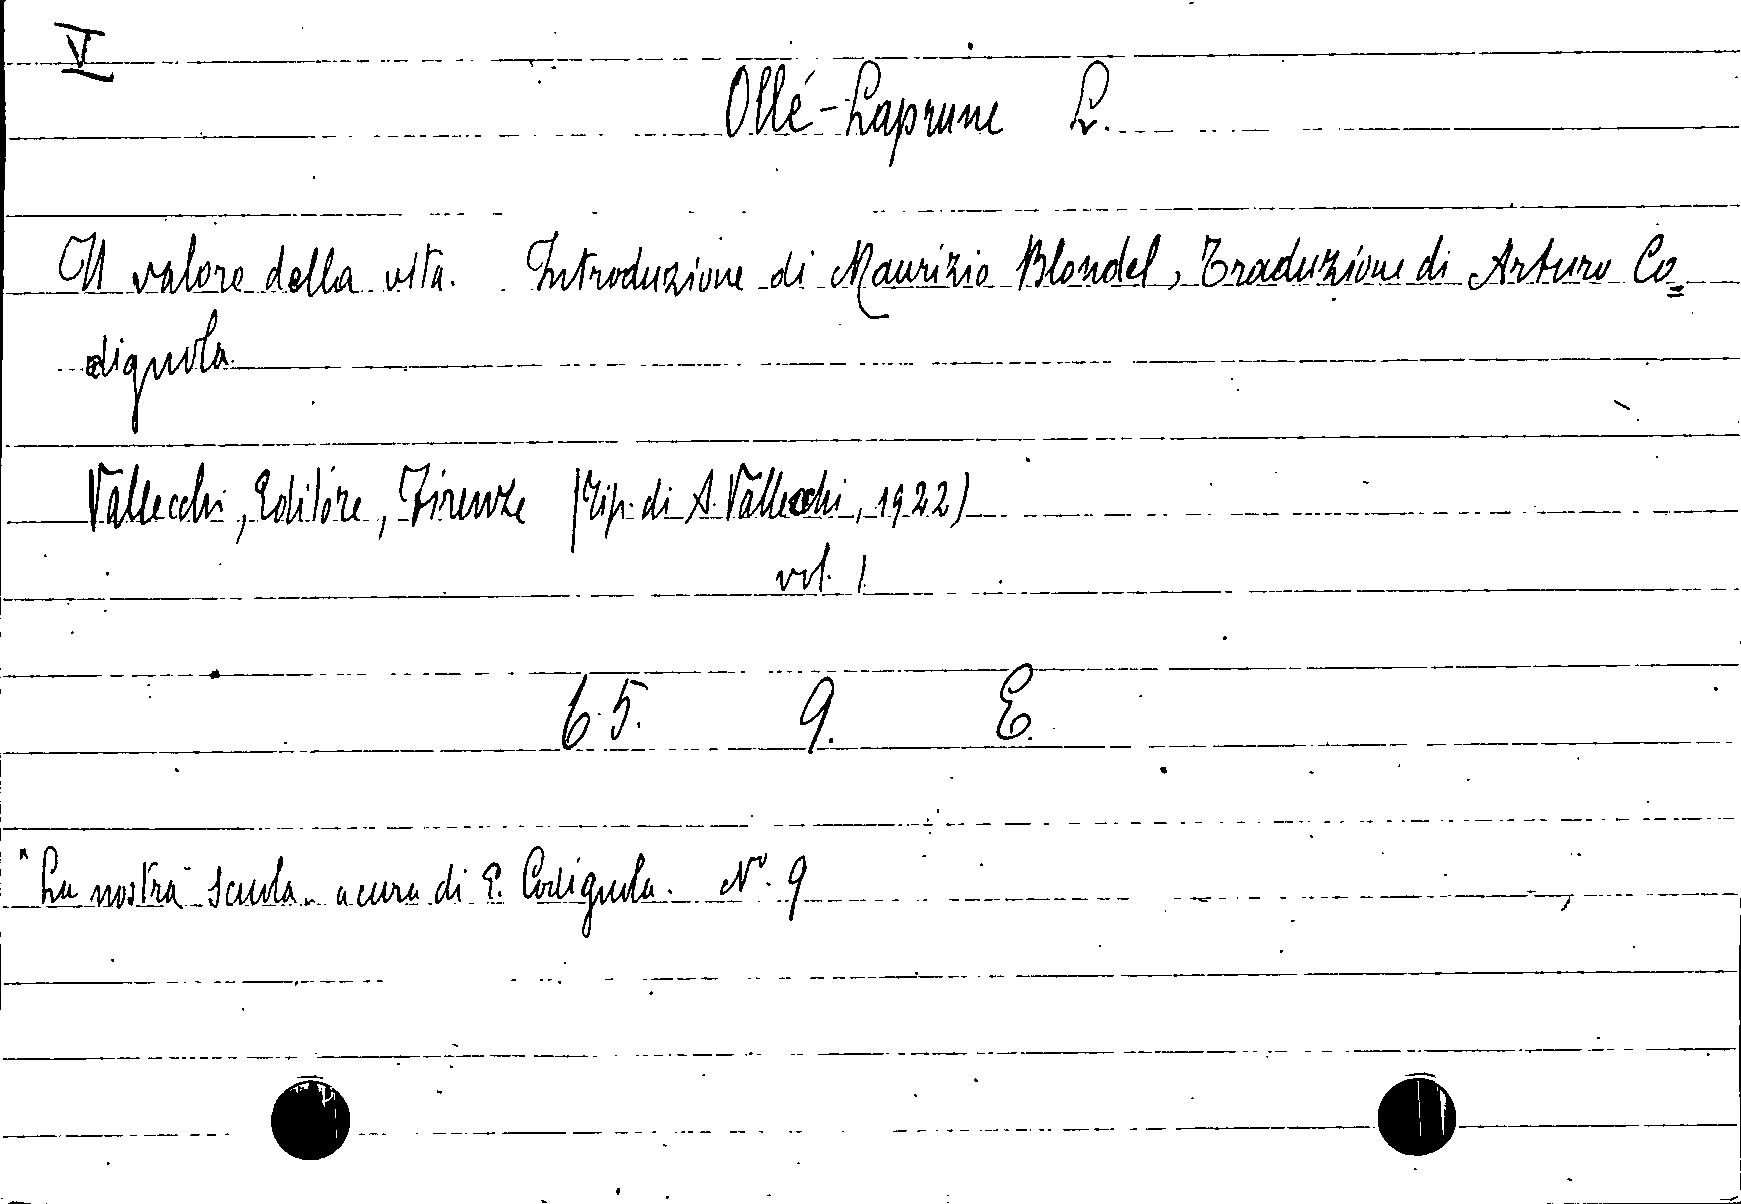 V
Ollé-Laprune L.
Il valore della vita. Introduzione di Maurizio Blondel, Traduzione di Arturo Co=
dignola
Vallecchi, Editore, Firenze (Tip. di A. Vallecchi, 1922)
vol. 1
65. 9. E.
"La nostra scuola" a cura di E. Codignola. N° 9